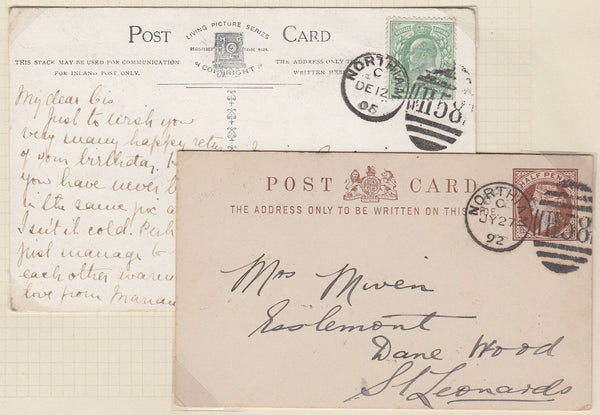 LIVING PICTURE SERIES
POST CARD
REGISTERED TRADE MARK
"COPYRIGHT"
THIS SPACE MAY BE USED FOR COMMUNICATION
FOR INLAND POST ONLY.
THE ADDRESS ONLY TO
WRITTEN HERE
NORTHIAM
C
DE 12
05
D58
My dear Cis
Just to wish you
very many happy retu
of your birthday.
you have never b
in the same
Isn't it cold. Perh
just manage to
each other warm
love from Marian
POST CARD
HALF PENNY
THE ADDRESS ONLY TO BE WRITTEN ON THIS SIDE
NORTHIAM
C
JY 27
92
D58
Mrs Miven
Esslemont
Dane Wood
St Leonards